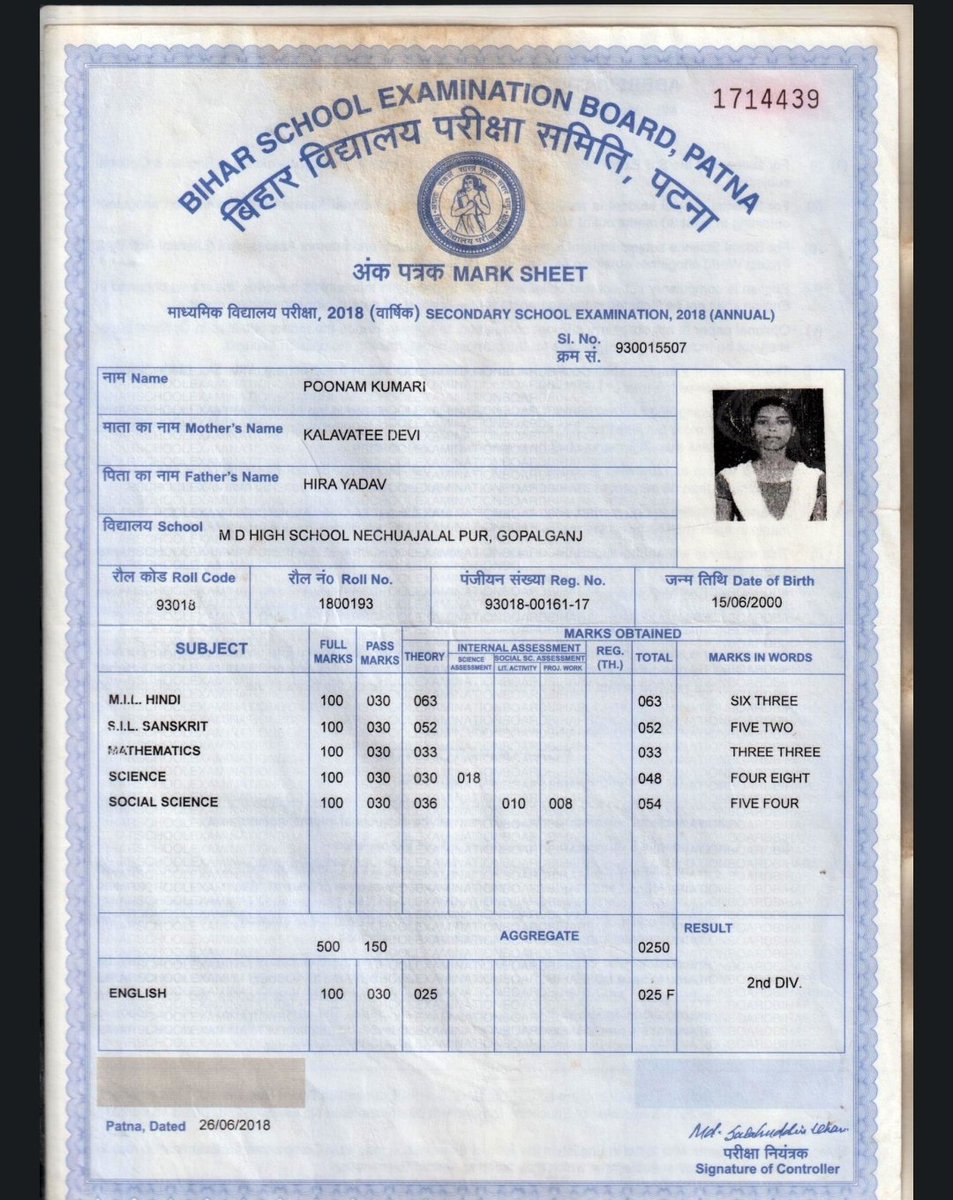 1714439
BIHAR SCHOOL EXAMINATION BOARD, PATNA
बिहार विद्यालय परीक्षा समिति, पटना
अंक पत्रक MARK SHEET
माध्यमिक विद्यालय परीक्षा, 2018 (वार्षिक) SECONDARY SCHOOL EXAMINATION, 2018 (ANNUAL)
Sl. No.
क्रम सं. 930015507
नाम Name POONAM KUMARI
माता का नाम Mother's Name KALAVATEE DEVI
पिता का नाम Father's Name HIRA YADAV
विद्यालय School M D HIGH SCHOOL NECHUAJALAL PUR, GOPALGANJ
रौल कोड Roll Code रौल नं० Roll No. पंजीयन संख्या Reg. No. जन्म तिथि Date of Birth
93018 1800193 93018-00161-17 15/06/2000
MARKS OBTAINED
SUBJECT FULL MARKS PASS MARKS THEORY INTERNAL ASSESSMENT REG. (TH.) TOTAL MARKS IN WORDS
SCIENCE ASSESSMENT SOCIAL SC. ASSESSMENT
LIT. ACTIVITY PROJ. WORK
M.I.L. HINDI 100 030 063 063 SIX THREE
S.I.L. SANSKRIT 100 030 052 052 FIVE TWO
MATHEMATICS 100 030 033 033 THREE THREE
SCIENCE 100 030 030 018 048 FOUR EIGHT
SOCIAL SCIENCE 100 030 036 010 008 054 FIVE FOUR
500 150 AGGREGATE 0250 RESULT
ENGLISH 100 030 025 025 F 2nd DIV.
Patna, Dated 26/06/2018
परीक्षा नियंत्रक
Signature of Controller